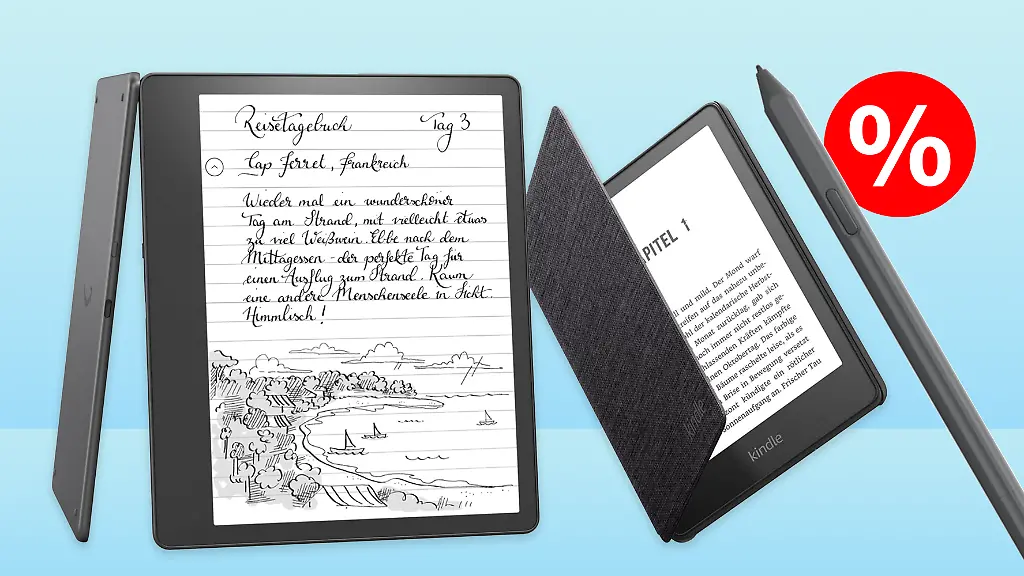 Reisetagebuch Tag 3
Cap Ferret, Frankreich
Wieder mal ein wunderschöner
Tag am Strand, mit vielleicht etwas
zu viel Weißwein. Ebbe nach dem
Mittagessen - der perfekte Tag für
einen Ausflug zum Strand. Kaum
eine andere Menschenseele in Sicht.
Himmlisch!
PITEL 1
ll und mild. Der Mond warf
reifen auf das nahezu unbe-
hl der kalendarische Herbst-
Monat zurücklag, gab sich
och immer nicht restlos ge-
nlassenden Kräften kämpfte
nen Oktobertag. Das farbige
Bäume raschelte leise, als es
Brise in Bewegung versetzt
zont kündigte ein rötlicher
onnenaufgang an. Frischer Tau
kindle
kindle
%